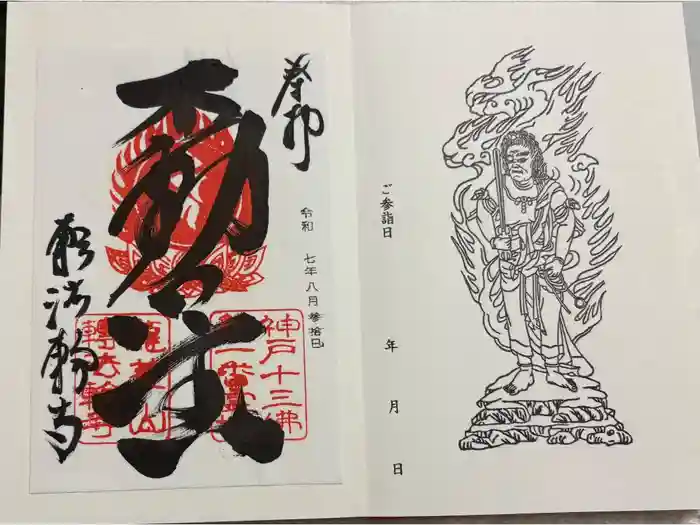 奉拝
令和 七年八月参拾日
不動明王
神戸十三佛
第一番
龍華山
轉法輪寺
転法輪寺
ご参詣日 年 月 日